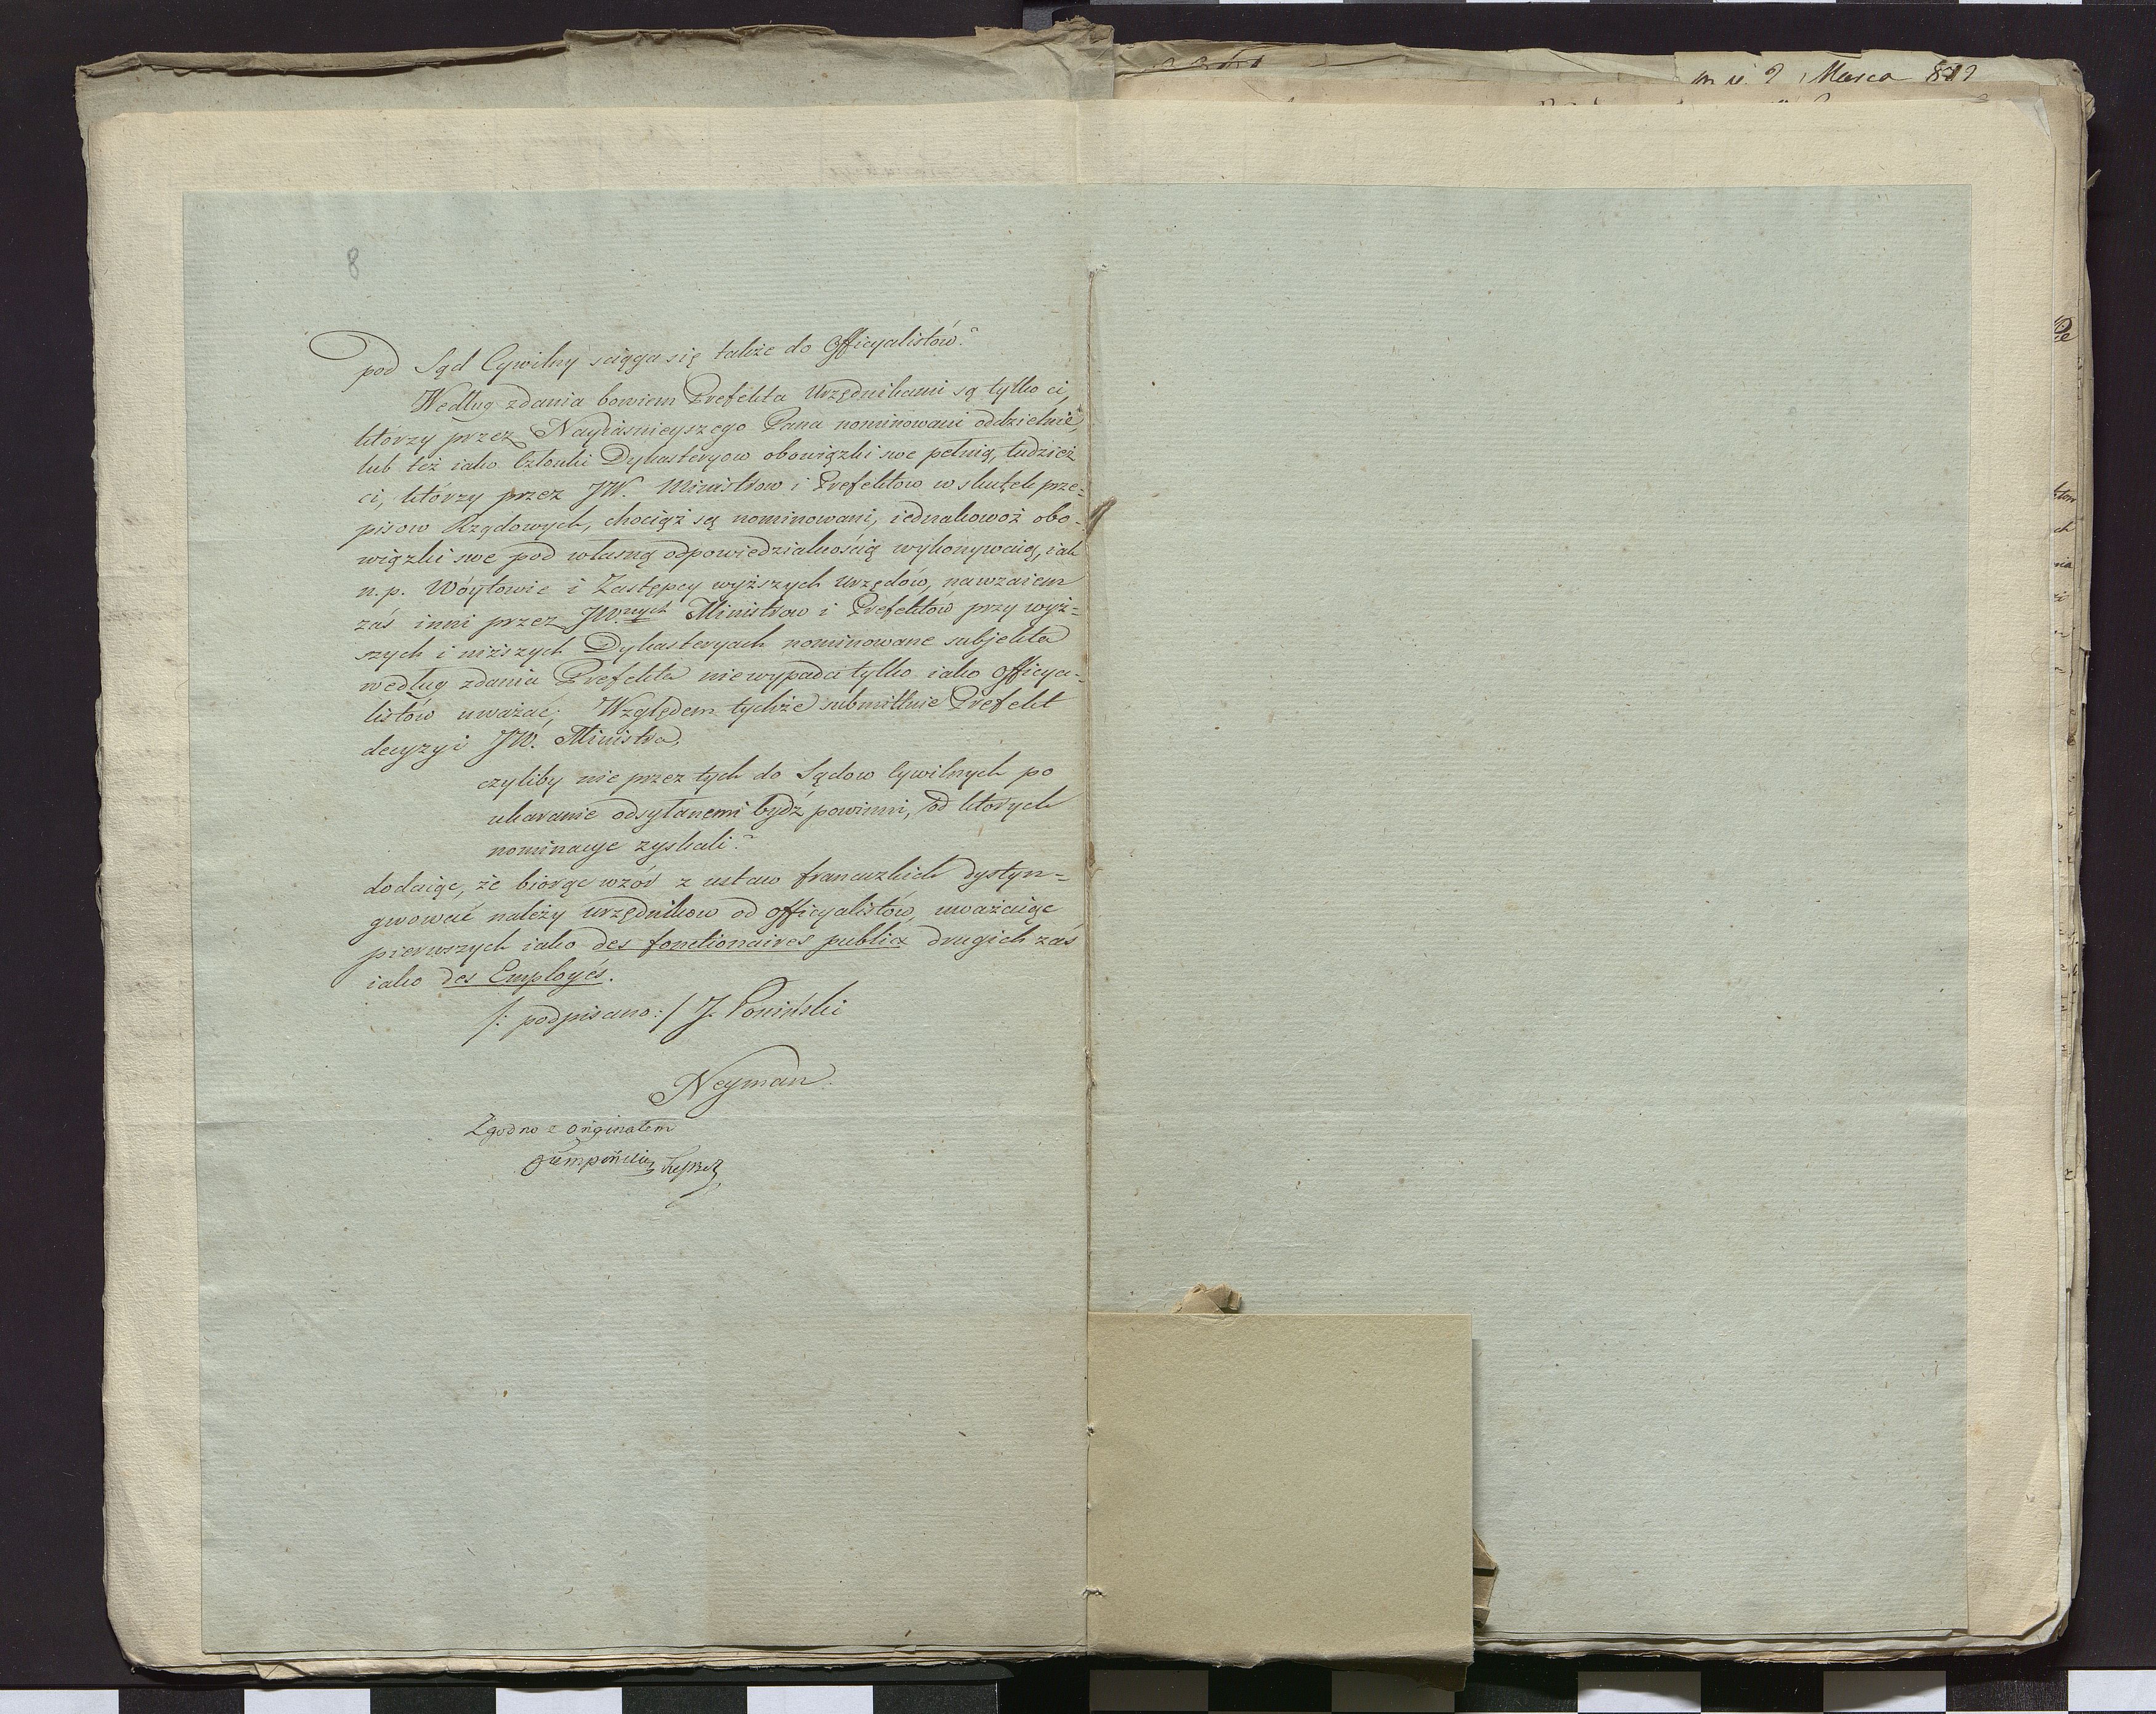 m. d. 9 Marca 812
8
pod Sąd Cywilny ściąga się także do Officyalistów?
Według zdania bowiem Prefekta Urzędnikami są tylko ci,
którzy przez Nayiaśnieyszego Pana nominowani oddzielnie,
lub też iako Członki Dykasteryow obowiązki swe pełnią, tudzież
ci, którzy przez JW. Ministrow i Prefektow w skutek prze-
pisow Rządowych, chociąż są nominowani, iednakowoż obo-
wiązki swe pod własną odpowiedzialnością wykonywaią, iak
n. p. Wóytowie i Zastępcy wyższych urzędów, nawzaiem
zaś inni przez JW.nych Ministrow i Prefektów przy wyż-
szych i niższych Dykasteryach nominowane subjekta
według zdania Prefekta niewypada tylko iako Officya-
listów uważać; Względem tychże submittuie Prefekt
decyzyi JW. Ministra,
czyliby nie przez tych do Sądow Cywilnych po
ukaranie odsyłanemi bydź powinni, od których
nominacye zyskali?
dodaiąc, że biorąc wzór z ustaw francuzkich dystyn-
gwować należy urzędnikow od officyalistów, uważaiąc
pierwszych iako des fonctionaires publics drugich zaś
iako des Employés.
/: podpisano :/ J. Poniński
Neyman
Zgodno z originałem